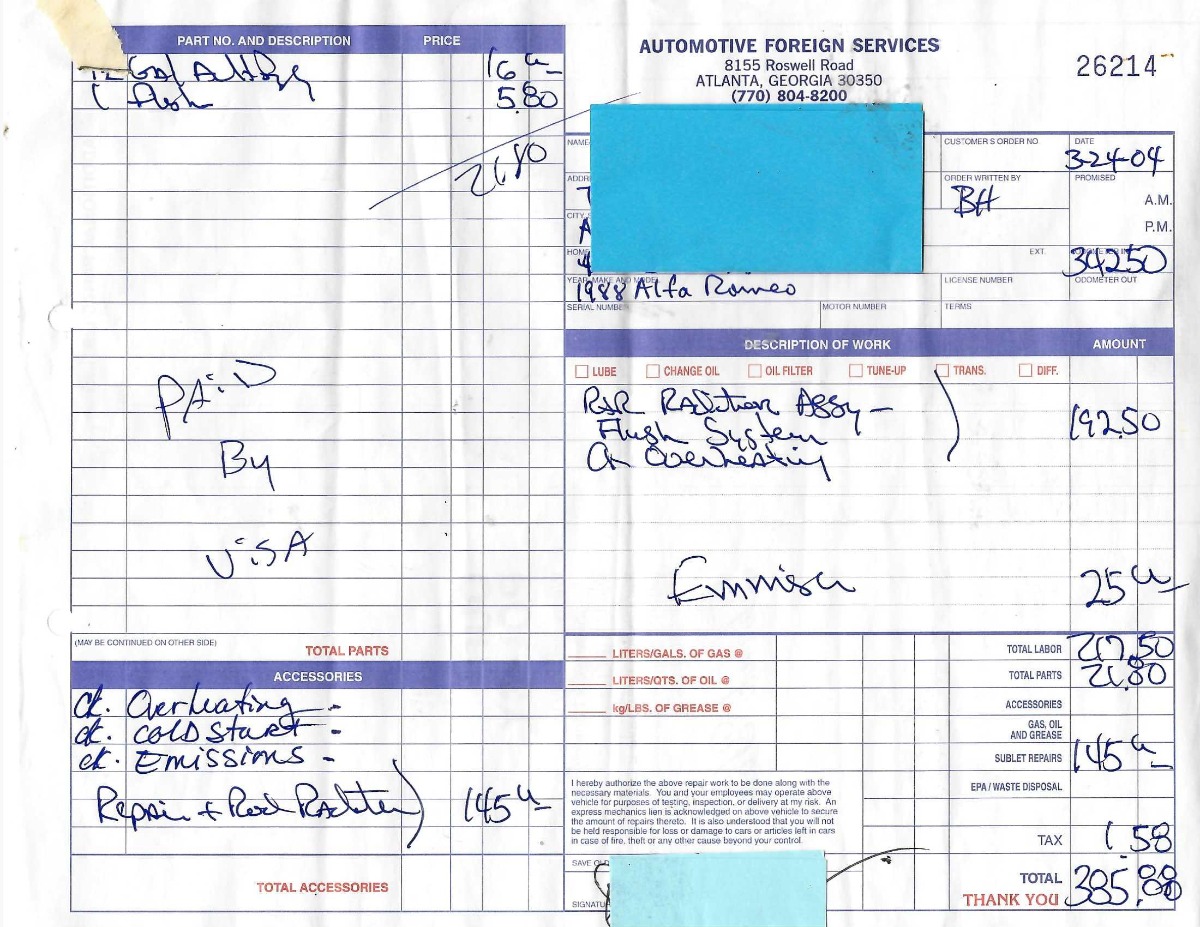 PART NO. AND DESCRIPTION PRICE
Gal Antifrze 16 00
1 flush 5.80
21.80
AUTOMOTIVE FOREIGN SERVICES
8155 Roswell Road
ATLANTA, GEORGIA 30350
(770) 804-8200
26214
NAME
CUSTOMER'S ORDER NO
DATE
3-24-04
ORDER WRITTEN BY
BH
PROMISED
A.M.
P.M.
EXT.
34250
YEAR, MAKE AND MODEL
1988 Alfa Romeo
LICENSE NUMBER
ODOMETER OUT
SERIAL NUMBER
MOTOR NUMBER
TERMS
DESCRIPTION OF WORK AMOUNT
LUBE CHANGE OIL OIL FILTER TUNE-UP TRANS. DIFF.
R&R Radiator Assy -
Flush System 192.50
Ck Overheating
Emmisn 25 00
PAiD
By
ViSA
(MAY BE CONTINUED ON OTHER SIDE)
TOTAL PARTS
ACCESSORIES
ck. Overheating -
ck. Cold Start -
ck. Emissions -
Repair + Rod Radiator) 145 00
TOTAL ACCESSORIES
LITERS/GALS. OF GAS @
LITERS/QTS. OF OIL @
kg/LBS. OF GREASE @
TOTAL LABOR 217.50
TOTAL PARTS 21.80
ACCESSORIES
GAS, OIL
AND GREASE
SUBLET REPAIRS 145 00
EPA / WASTE DISPOSAL
TAX 1.58
TOTAL 385.88
THANK YOU
I hereby authorize the above repair work to be done along with the
necessary materials. You and your employees may operate above
vehicle for purposes of testing, inspection, or delivery at my risk. An
express mechanics lien is acknowledged on above vehicle to secure
the amount of repairs thereto. It is also understood that you will not
be held responsible for loss or damage to cars or articles left in cars
in case of fire, theft or any other cause beyond your control.
SAVE